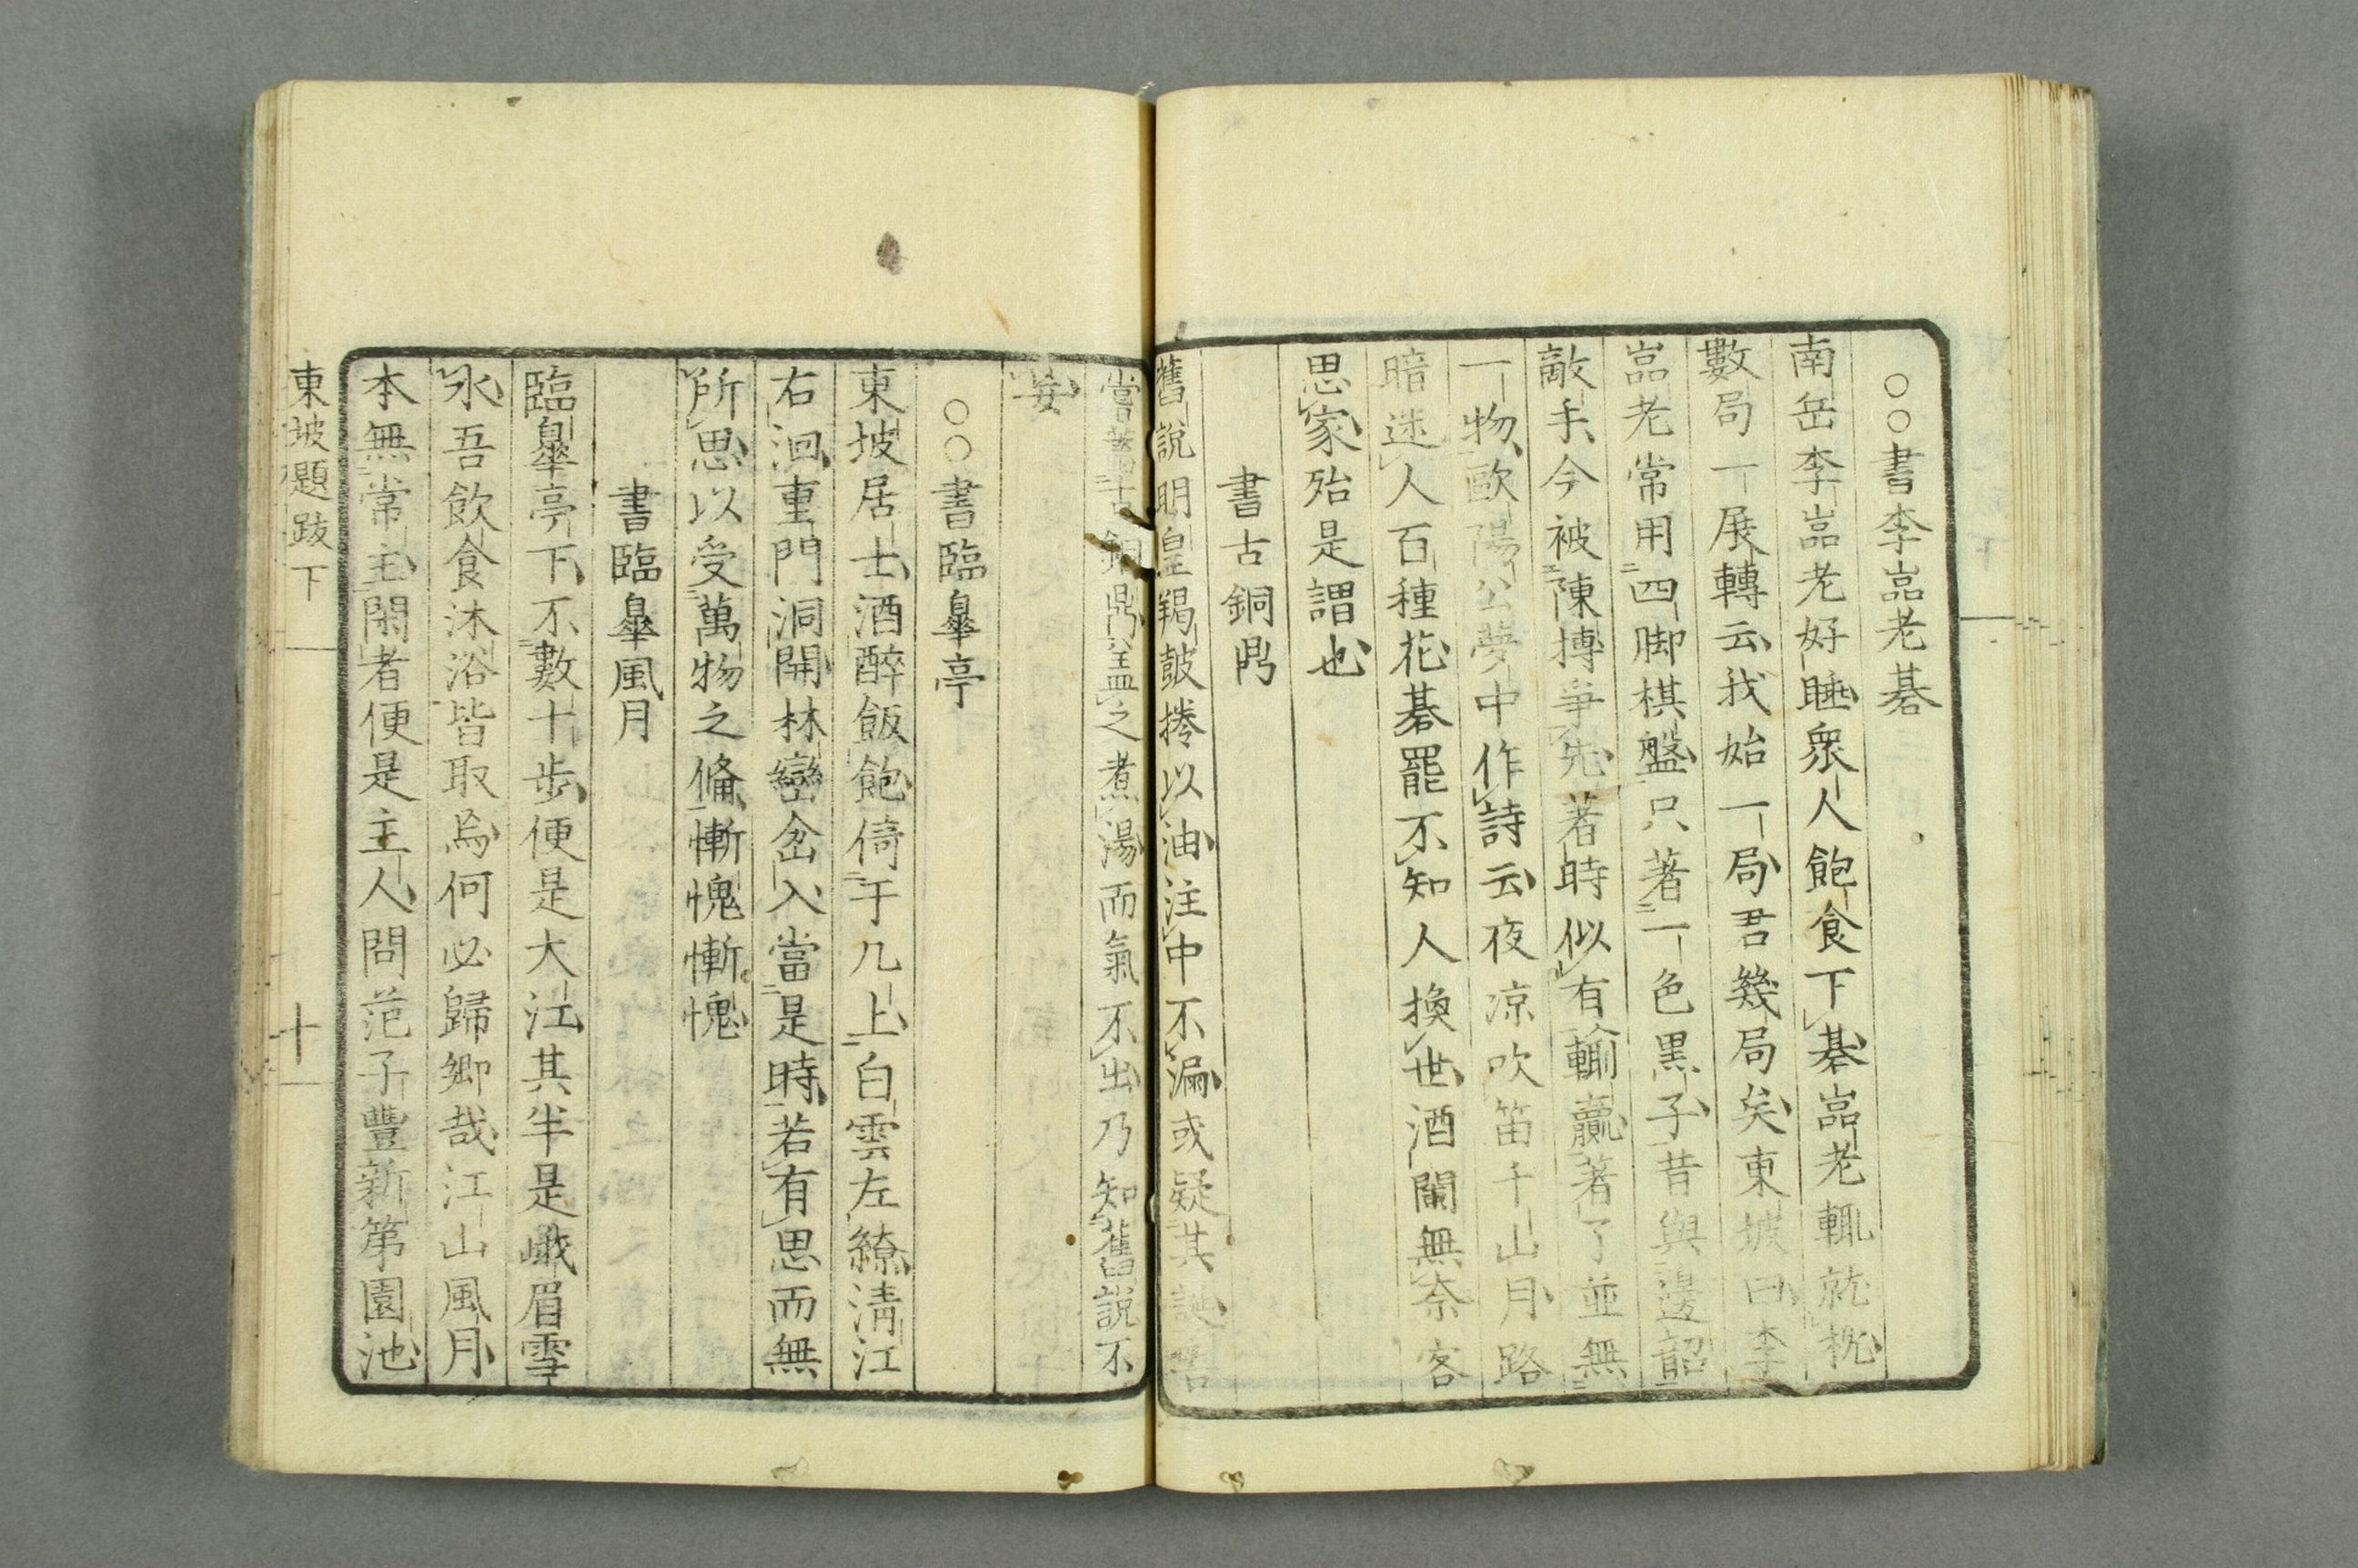 ○○書李嵓老碁
南岳李嵓老好睡衆人飽食下碁嵓老輒就枕
數局一展轉云我始一局君幾局矣東坡曰李
嵓老常用四脚棋盤只著一色黒子昔與邊韶
敵手今被陳摶爭先著時似有輸贏著了並無
一物歐陽公夢中作詩云夜凉吹笛千山月路
暗迷人百種花碁罷不知人換世酒闌無奈客
思家殆是謂也
書古銅鼎
舊說明皇羯皷捲以油注中不漏或疑其誕
嘗蓄古銅鼎盖之煮湯而氣不出乃知舊說不
妄
○○書臨皐亭
東坡居士酒醉飯飽倚于几上白雲左繚淸江
右洄重門洞開林巒坌入當是時若有思而無
所思以受萬物之俻慚愧慚愧
書臨皐風月
臨皐亭下不數十歩便是大江其半是峨眉雪
水吾飲食沐浴皆取焉何必歸鄉哉江山風月
本無常主閑者便是主人問范子豐新第園池
東坡題跋下
十